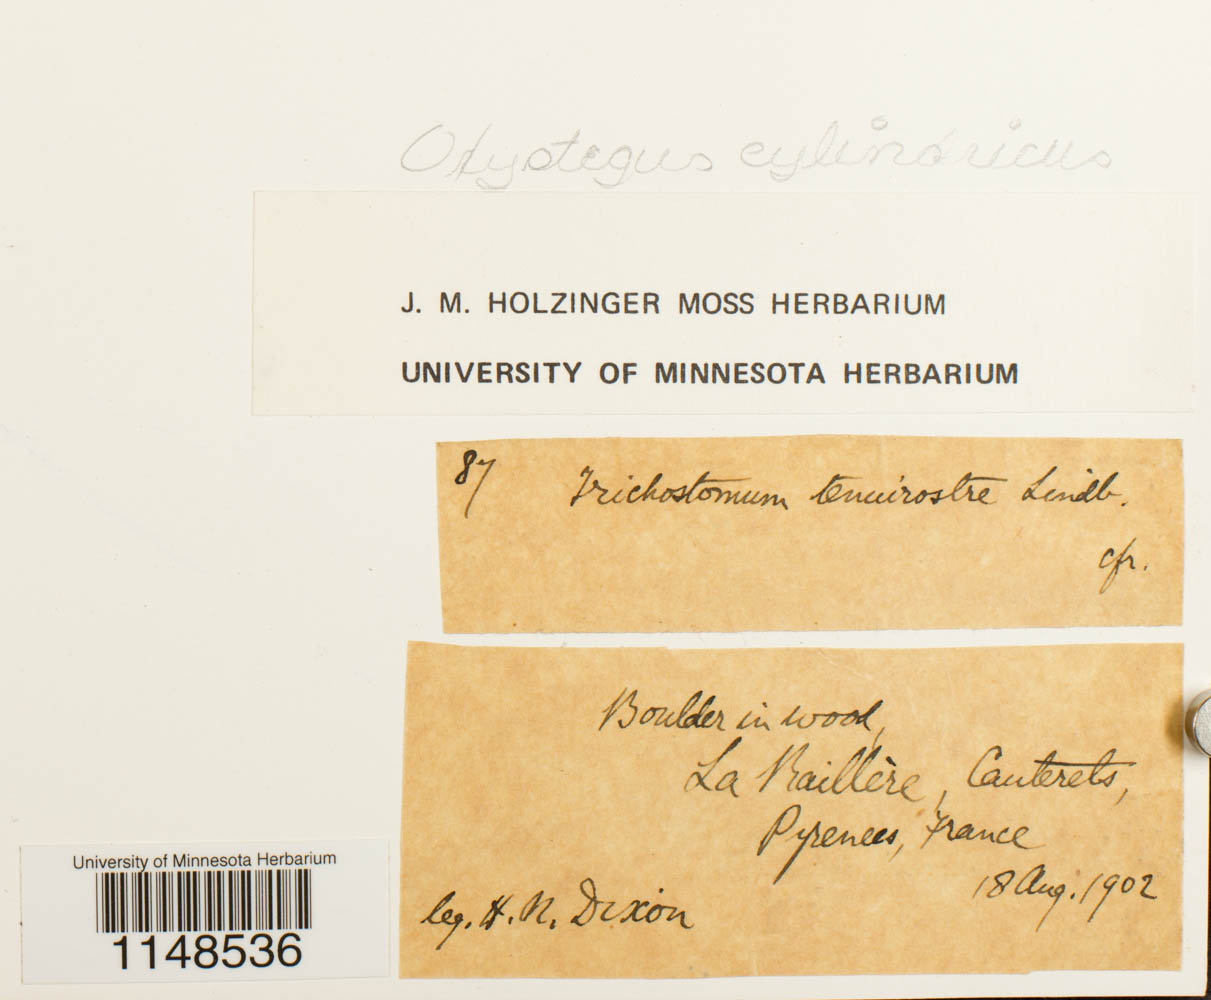 Oxystegus cylindricus
J. M. HOLZINGER MOSS HERBARIUM
UNIVERSITY OF MINNESOTA HERBARIUM
87 Trichostomum tenuirostre Lindb.
cfr.
Boulder in wood,
La Raillère, Cauterets,
Pyrenees, France
18 Aug. 1902
leg. H. N. Dixon
University of Minnesota Herbarium
1148536